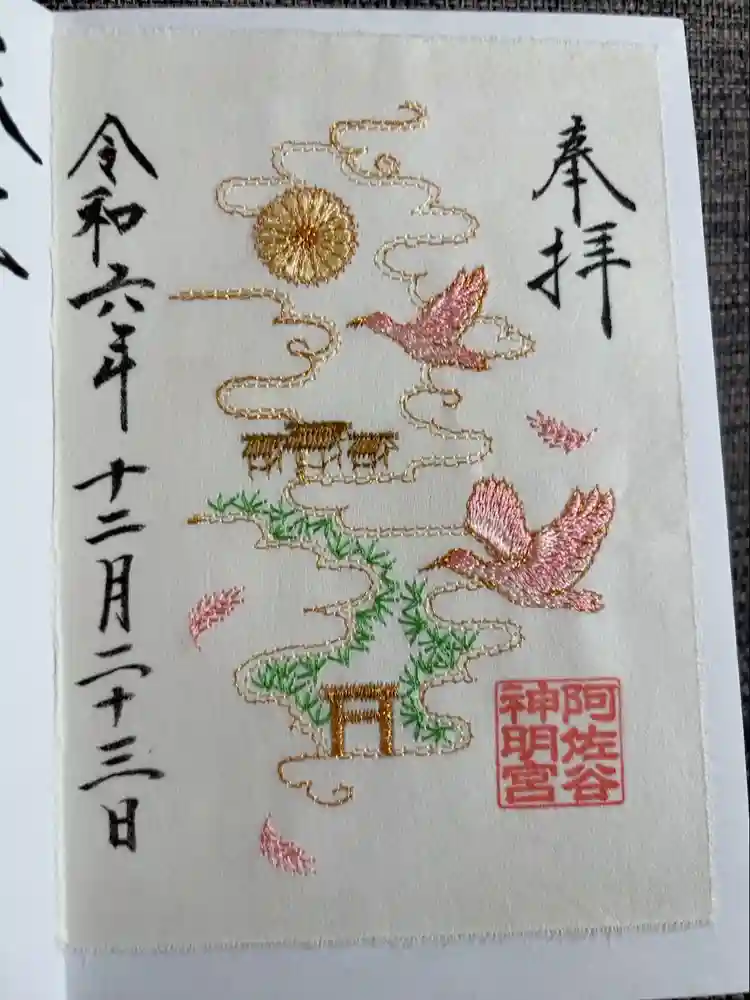 奉拝
阿佐谷
神明宮
令和六年十二月二十三日